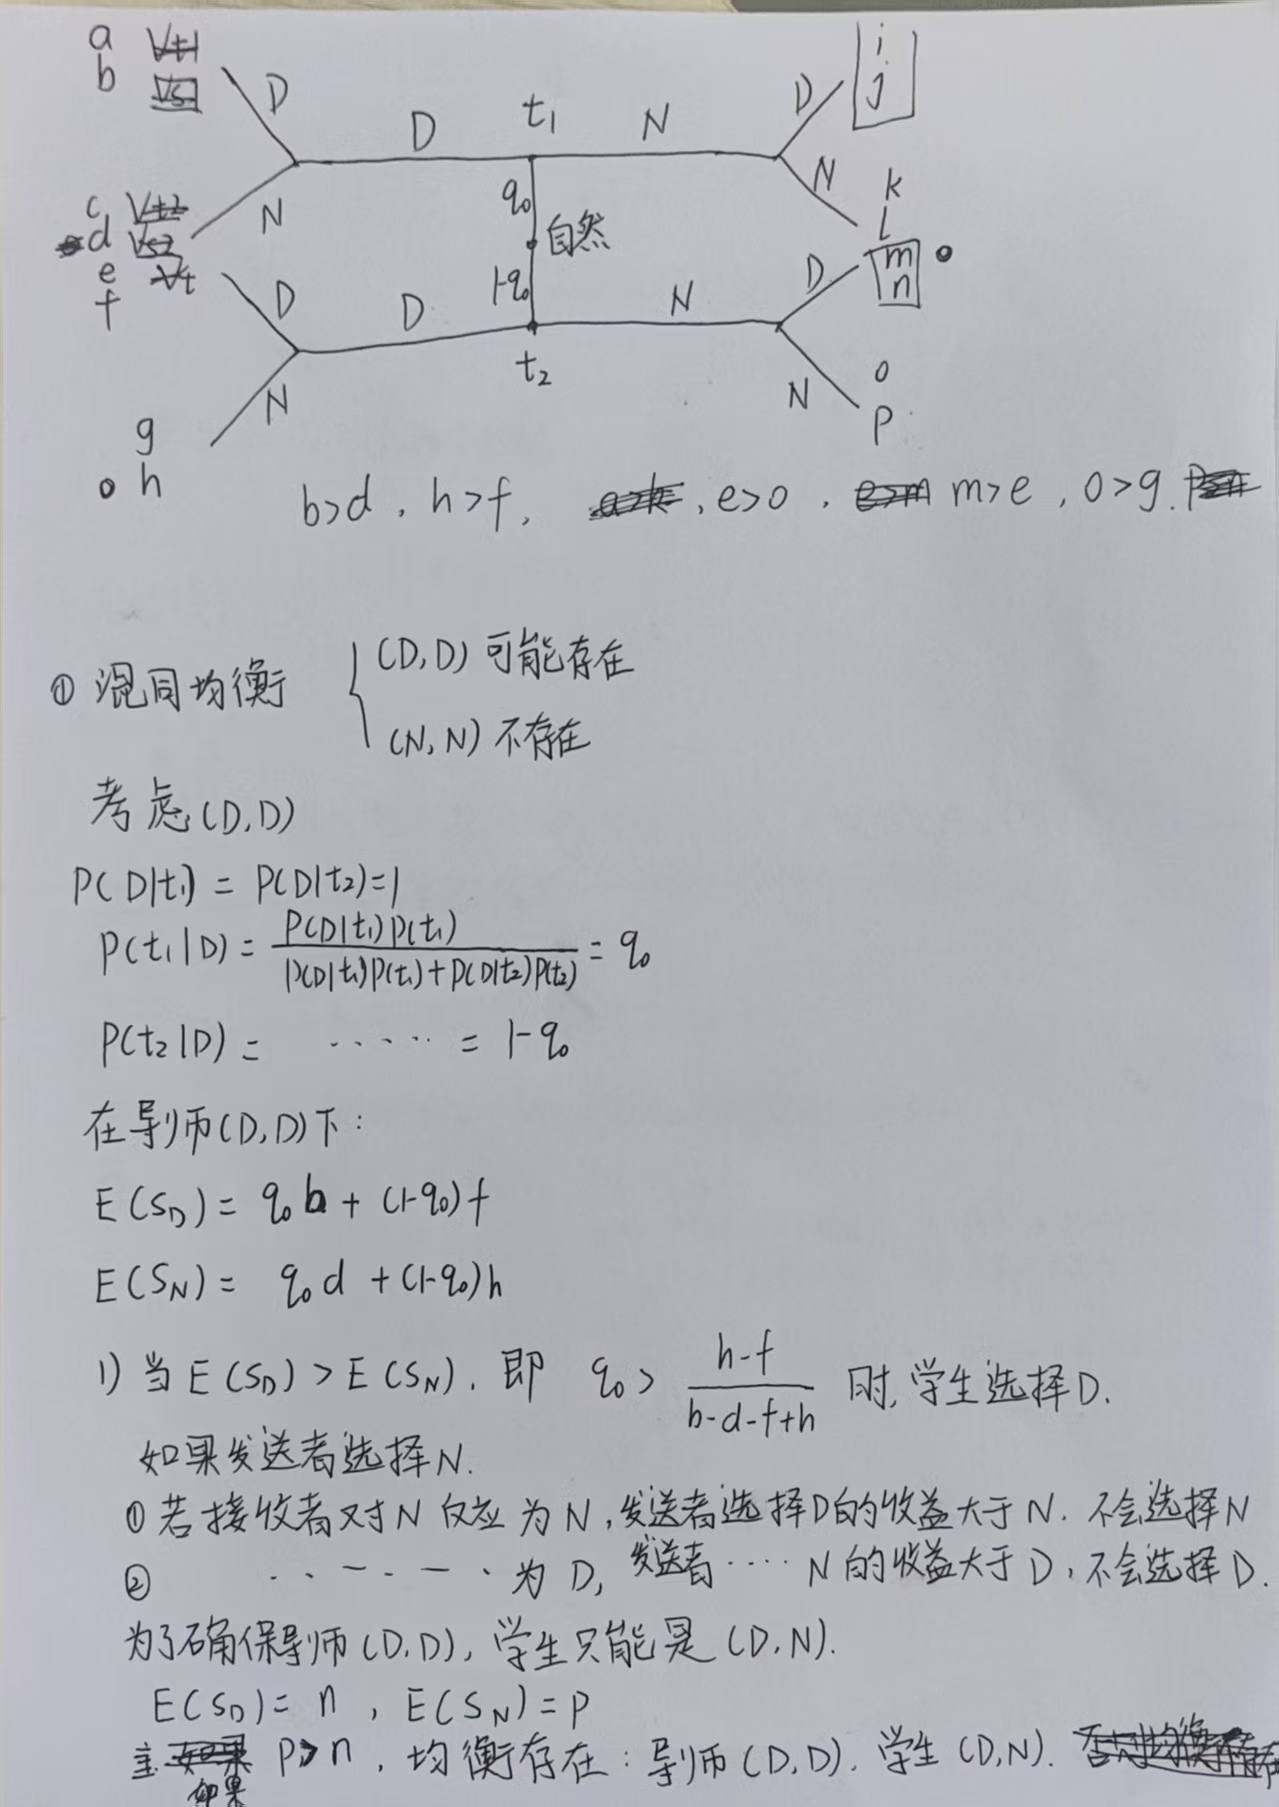 a
b
D
D
t₁
N
D
i
j
N
k
l
c
d
e
f
N
q₀
自然
1-q₀
D
D
t₂
N
D
m
n
N
o
p
g
h
N
b>d, h>f, , e>o, m>e, o>g.
① 混同均衡 { (D,D) 可能存在
(N,N) 不存在
考虑(D,D)
P(D|t₁) = P(D|t₂)=1
P(t₁|D) = P(D|t₁)P(t₁) / P(D|t₁)P(t₁)+P(D|t₂)P(t₂) = q₀
P(t₂|D) = ..... = 1-q₀
在导师(D,D)下:
E(S_D) = q₀b + (1-q₀)f
E(S_N) = q₀d + (1-q₀)h
1) 当E(S_D)>E(S_N), 即 q₀ > h-f / b-d-f+h 时, 学生选择D.
如果发送者选择N.
① 若接收者对N反应为N, 发送者选择D的收益大于N. 不会选择N
② ...... 为D, 发送者.... N的收益大于D, 不会选择D.
为了确保导师(D,D), 学生只能是(D,N).
E(S_D)= n , E(S_N)= p
如果 p>n, 均衡存在: 导师(D,D). 学生(D,N).